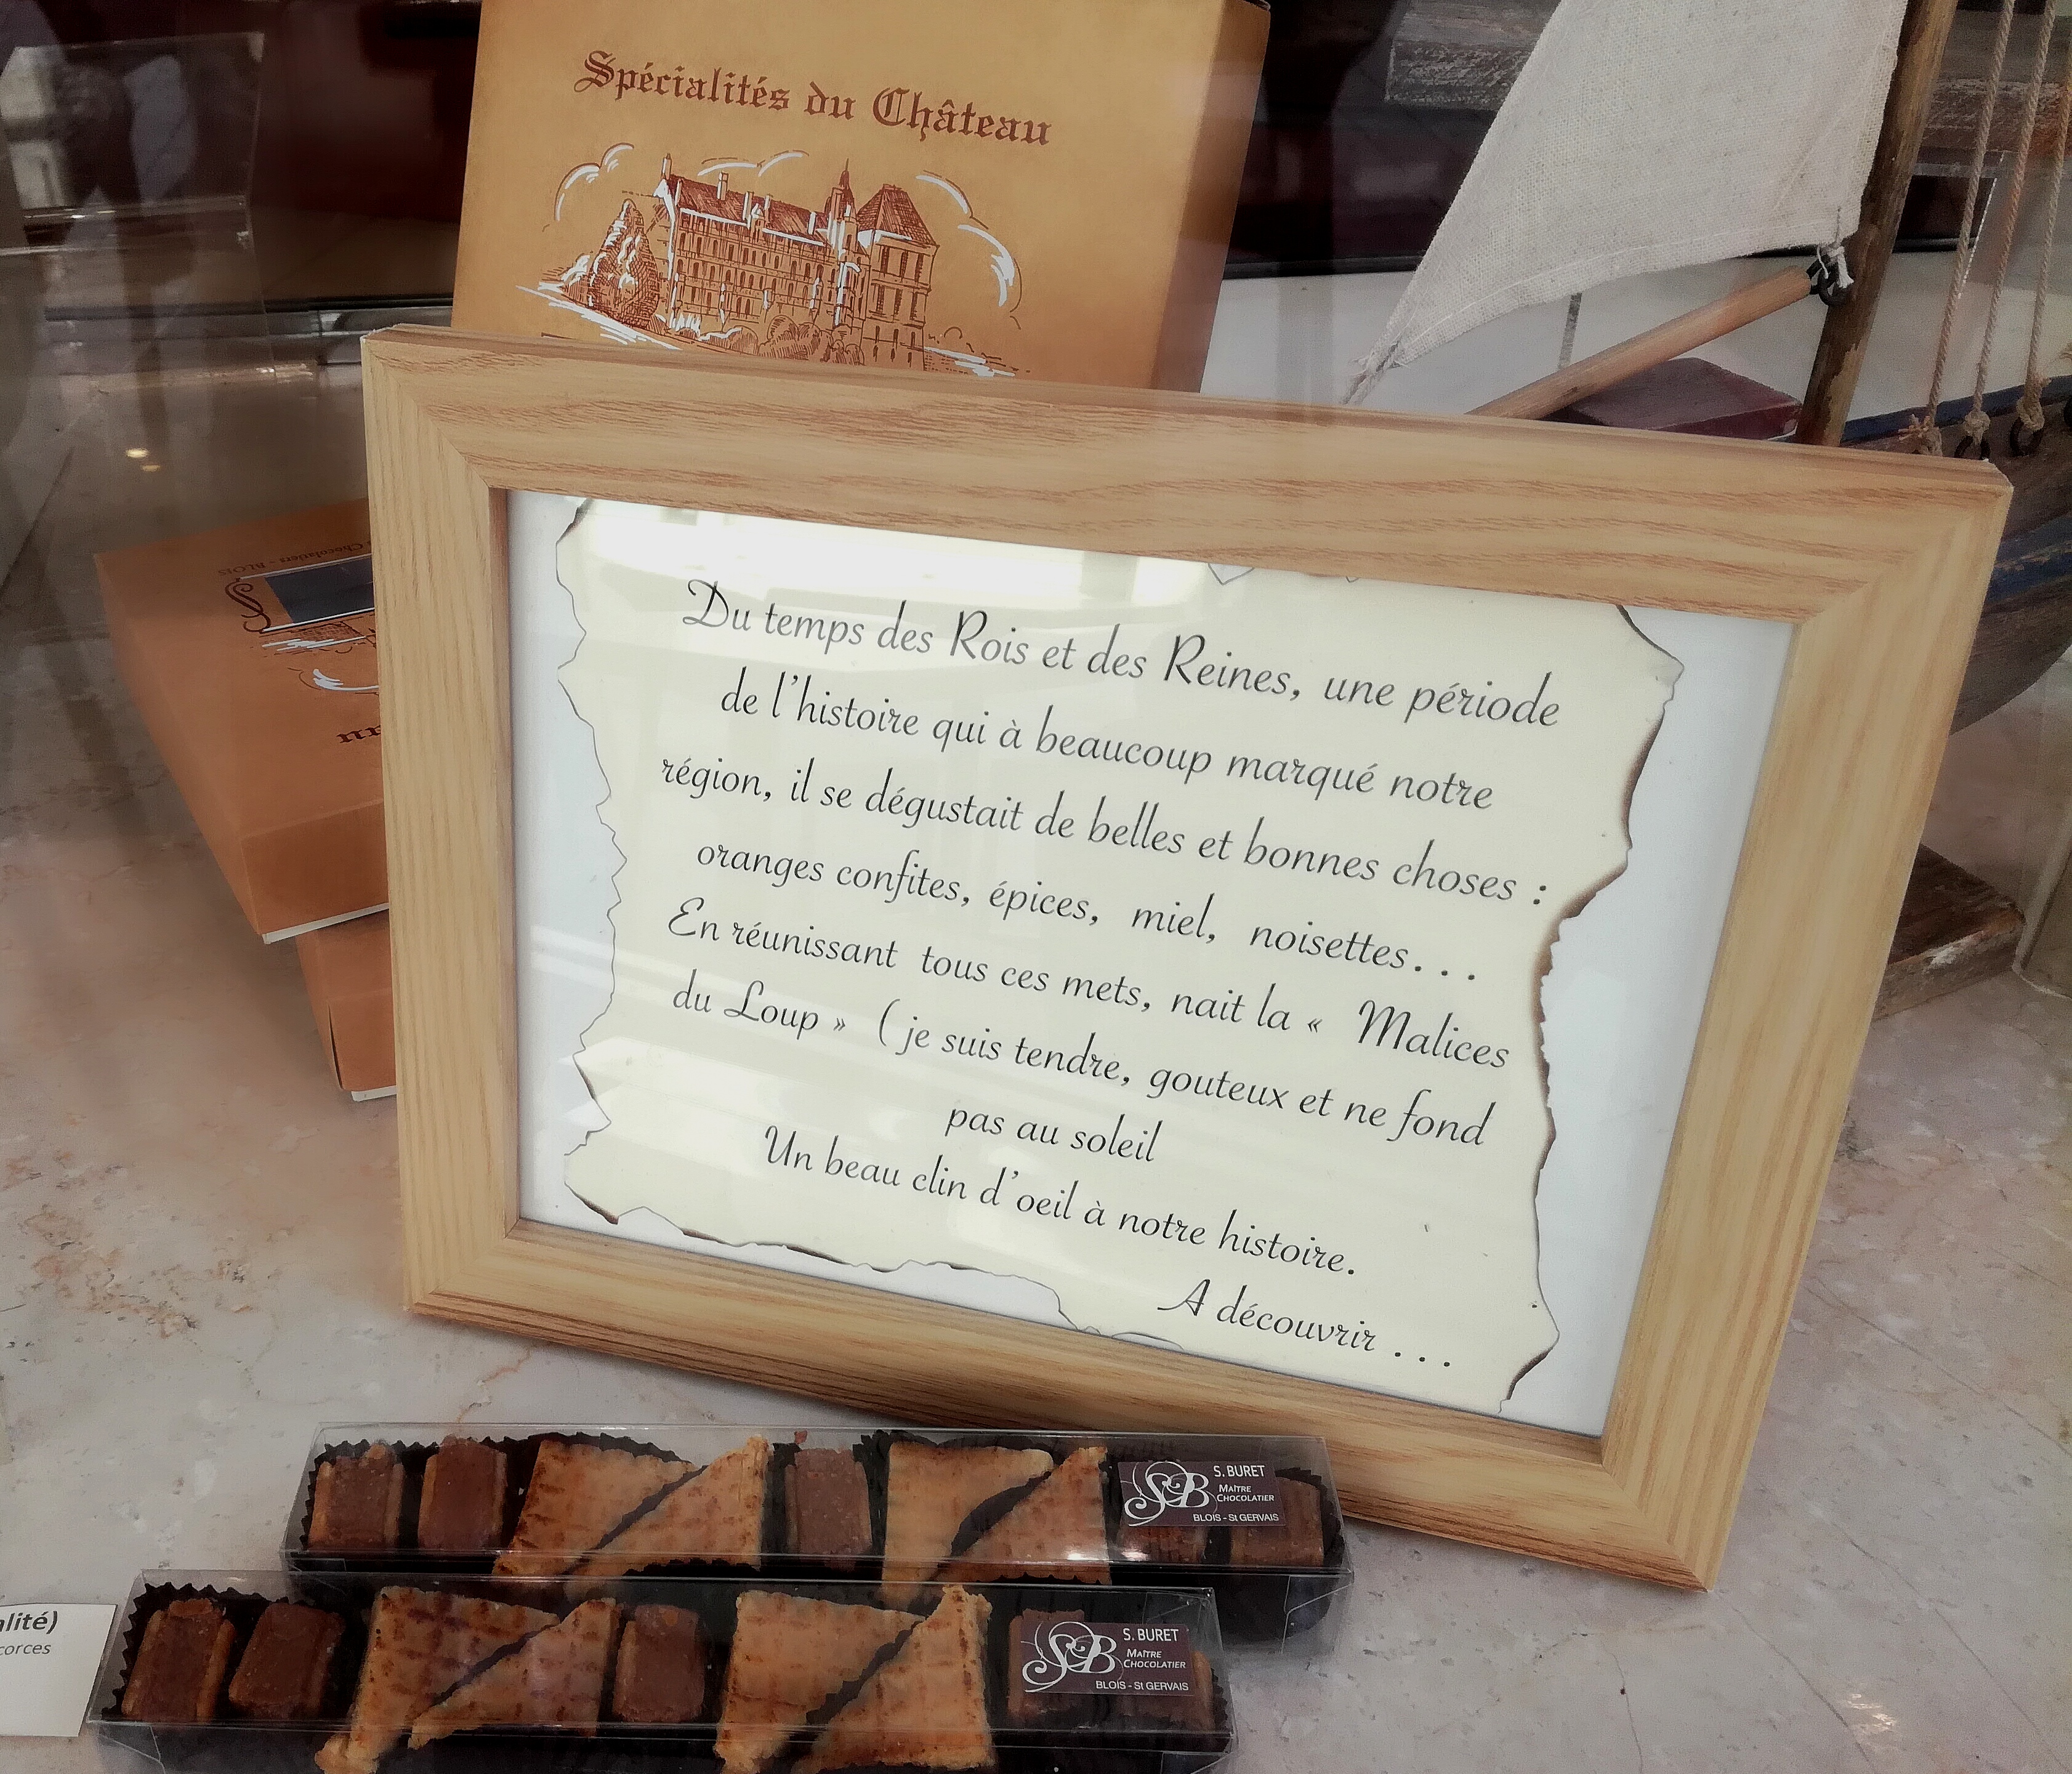 Spécialités du Château
Du temps des Rois et des Reines, une période
de l'histoire qui à beaucoup marqué notre
région, il se dégustait de belles et bonnes choses :
oranges confites, épices, miel, noisettes...
En réunissant tous ces mets, nait la « Malices
du Loup » ( je suis tendre, gouteux et ne fond
pas au soleil
Un beau clin d'oeil à notre histoire.
A découvrir ...
SB S. BURET
MAÎTRE
CHOCOLATIER
BLOIS - St GERVAIS
SB S. BURET
MAÎTRE
CHOCOLATIER
BLOIS - St GERVAIS
alité)
corces